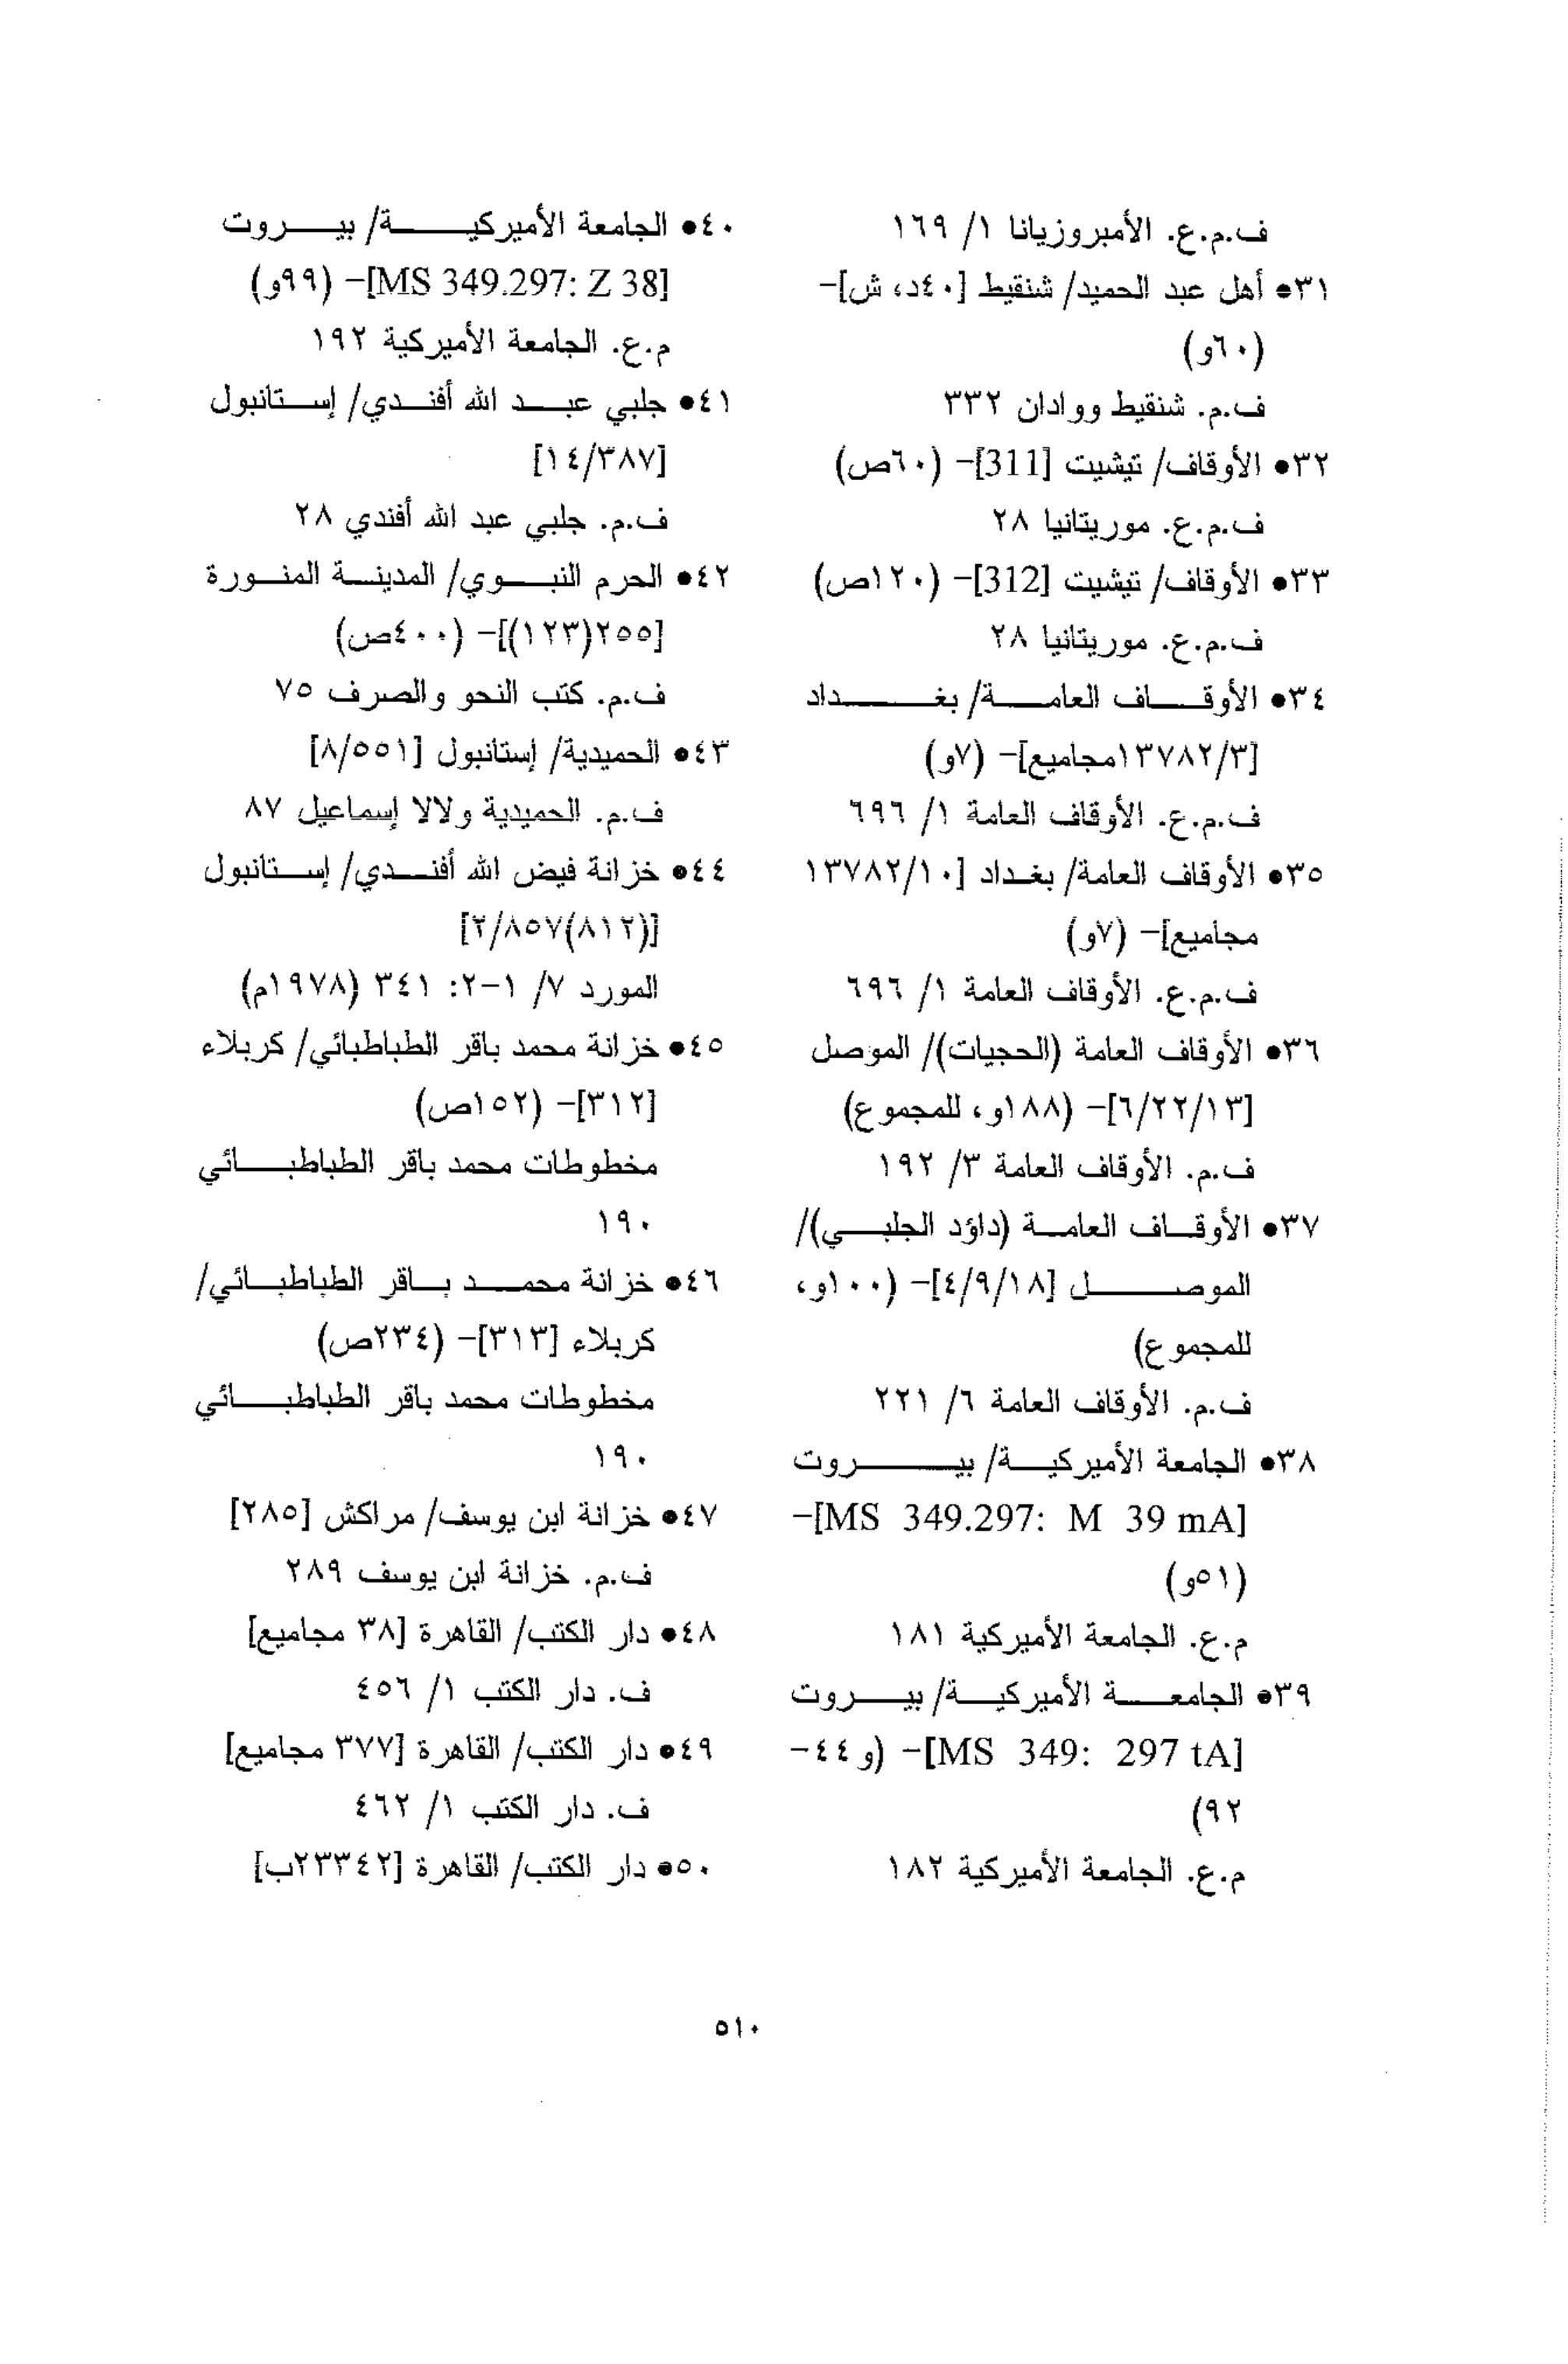 ف.م.ع. الأمبروزيانا ١/ ١٦٩
٣١• أهل عبد الحميد/ شنقيط [٤٠د، ش]-
(٦٠و)
ف.م. شنقيط ووادان ٣٣٢
٣٢• الأوقاف/ تيشيت [311]- (٦٠ص)
ف.م.ع. موريتانيا ٢٨
٣٣• الأوقاف/ تيشيت [312]- (١٢٠ص)
ف.م.ع. موريتانيا ٢٨
٣٤• الأوقاف العامة/ بغداد
[١٣٧٨٢/٣مجاميع]- (٧و)
ف.م.ع. الأوقاف العامة ١/ ٦٩٦
٣٥• الأوقاف العامة/ بغداد [١٣٧٨٢/١٠
مجاميع]- (٧و)
ف.م.ع. الأوقاف العامة ١/ ٦٩٦
٣٦• الأوقاف العامة (الحجيات)/ الموصل
[٦/٢٢/١٣]- (١٨٨و، للمجموع)
ف.م. الأوقاف العامة ٣/ ١٩٢
٣٧• الأوقاف العامة (داؤد الجلبي)/
الموصل [٤/٩/١٨]- (١٠٠و،
للمجموع)
ف.م. الأوقاف العامة ٦/ ٢٢١
٣٨• الجامعة الأميركية/ بيروت
[MS 349.297: M 39 mA]-
(٥١و)
م.ع. الجامعة الأميركية ١٨١
٣٩• الجامعة الأميركية/ بيروت
[MS 349: 297 tA]- (و ٤٤-
٩٢)
م.ع. الجامعة الأميركية ١٨٢
٤٠• الجامعة الأميركية/ بيروت
[MS 349.297: Z 38]- (٩٩و)
م.ع. الجامعة الأميركية ١٩٢
٤١• جلبي عبد الله أفندي/ إستانبول
[١٤/٣٨٧]
ف.م. جلبي عبد الله أفندي ٢٨
٤٢• الحرم النبوي/ المدينة المنورة
[٢٥٥(١٢٣)]- (٤٠٠ص)
ف.م. كتب النحو والصرف ٧٥
٤٣• الحميدية/ إستانبول [٨/٥٥١]
ف.م. الحميدية ولالا إسماعيل ٨٧
٤٤• خزانة فيض الله أفندي/ إستانبول
[٢/٨٥٧(٨١٢)]
المورد ٧/ ١-٢: ٣٤١ (١٩٧٨م)
٤٥• خزانة محمد باقر الطباطبائي/ كربلاء
[٣١٢]- (١٥٢ص)
مخطوطات محمد باقر الطباطبائي
١٩٠
٤٦• خزانة محمد باقر الطباطبائي/
كربلاء [٣١٣]- (٢٣٤ص)
مخطوطات محمد باقر الطباطبائي
١٩٠
٤٧• خزانة ابن يوسف/ مراكش [٢٨٥]
ف.م. خزانة ابن يوسف ٢٨٩
٤٨• دار الكتب/ القاهرة [٣٨ مجاميع]
ف. دار الكتب ١/ ٤٥٦
٤٩• دار الكتب/ القاهرة [٣٧٧ مجاميع]
ف. دار الكتب ١/ ٤٦٢
٥٠• دار الكتب/ القاهرة [٢٣٣٤٢ب]
٥١٠